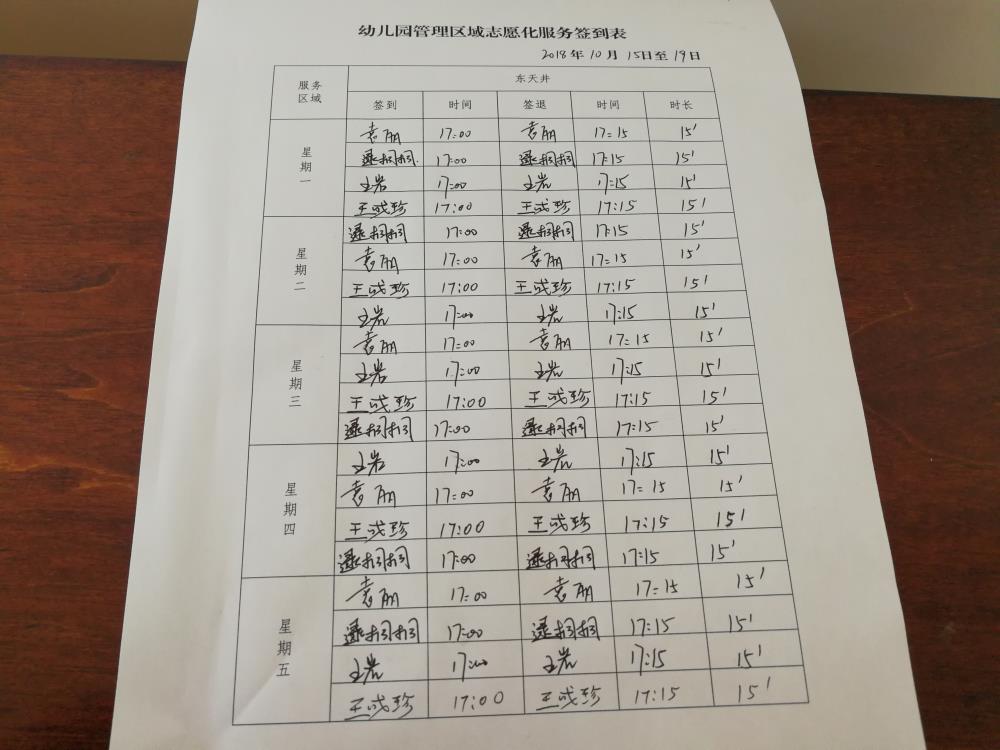 幼儿园管理区域志愿化服务签到表
2018年10月15日至19日
服务区域 东天井
签到 时间 签退 时间 时长
星期一
袁丽 17:00 袁丽 17:15 15'
逯桐桐 17:00 逯桐桐 17:15 15'
王岩 17:00 王岩 17:15 15'
王或珍 17:00 王或珍 17:15 15'
星期二
逯桐桐 17:00 逯桐桐 17:15 15'
袁丽 17:00 袁丽 17:15 15'
王或珍 17:00 王或珍 17:15 15'
王岩 17:00 王岩 17:15 15'
星期三
袁丽 17:00 袁丽 17:15 15'
王岩 17:00 王岩 17:15 15'
王或珍 17:00 王或珍 17:15 15'
逯桐桐 17:00 逯桐桐 17:15 15'
星期四
王岩 17:00 王岩 17:15 15'
袁丽 17:00 袁丽 17:15 15'
王或珍 17:00 王或珍 17:15 15'
逯桐桐 17:00 逯桐桐 17:15 15'
星期五
袁丽 17:00 袁丽 17:15 15'
逯桐桐 17:00 逯桐桐 17:15 15'
王岩 17:00 王岩 17:15 15'
王或珍 17:00 王或珍 17:15 15'